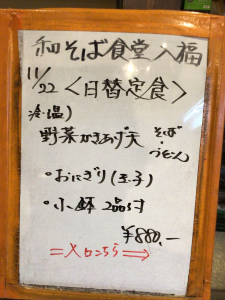 和そば食堂 入福
11/22 <日替定食>
冷・温)
野菜かきあげ天 そば・うどん
・おにぎり(玉子)
・小鉢 2品付
¥880.-
=入口こちら⇒